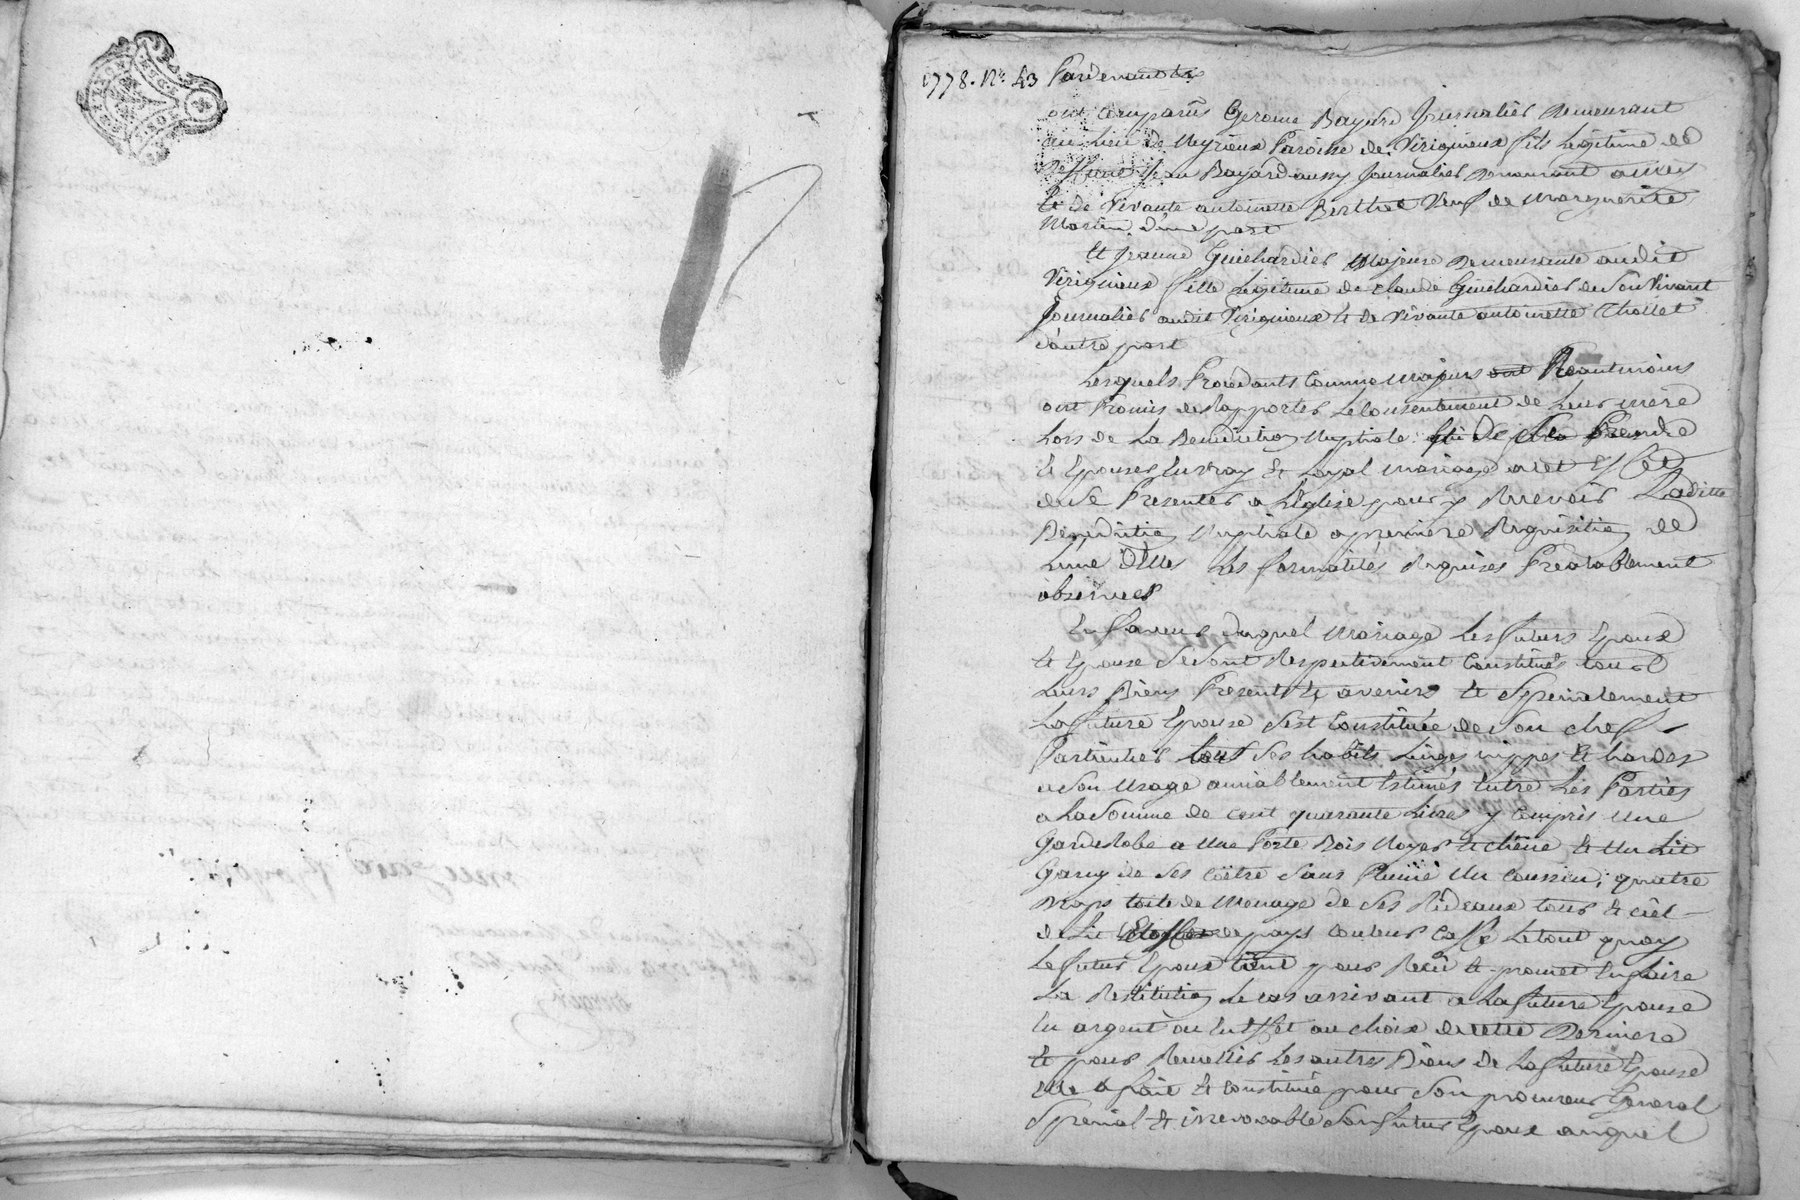 1778. N.° 43 Pardevant &a
ont comparus Gerome Bayard Journalier Demeurant
au Lieu de Meyrieux Paroisse de Viriginieux fils Legitime de
Deffunt Jean Bayard aussy Journalier Demeurant audit
et de vivante antoinette Berthet veuf de Marguerite
Morin d'une part
Et Jeanne Guichardier Majeure Demeurante audit
Virignieux fille Legitime de Claude Guichardier de son vivant
Journalier audit Virignieux et de vivante antoinette Thollet
d'autre part
Lesquels Procedants Comme Majeurs ont Neantmoins
ont Promis de Rapporter Le Consentement de Leur mere
Lors de La Benediction Nuptiale de se Prendre
et Epouser en vray et Loyal mariage a cet Effet
de se Presenter a L'Eglise pour y Recevoir Laditte
Benediction Nuptiale a premiere Requisition de
L'une d'Elles Les formalités Requises Prealablement
observées
En faveur duquel Mariage Les futurs Epoux
et Epouse se sont Respectivement Constitués tous
Leurs Biens Presents et avenirs et Specialement
La future Epouse s'est Constituée de son chef
Particulier tous ses habits Linges nippes et hardes
a son usage amiablement Estimés Entre Les Parties
a La Somme de cent quarante Livres y Compris une
Garderobe a une Porte Bois Noyer et chêne et un Lit
Garny de ses Coëtre sans Plume un Coussin, quatre
Draps toile de Menage de ses Rideaux tour et ciel
de Lit Etoffe de pays Couleur Caffé Le tout quoy
Le futur Epoux tient pour Reçu et promet En faire
La Restitution Le cas arrivant a La future Epouse
En argent ou En Effet au choix de cette Derniere
et pour Recueillir Les autres Biens de La future Epouse
Elle a fait et constitué pour son procureur General
Special et irrevocable son futur Epoux auquel